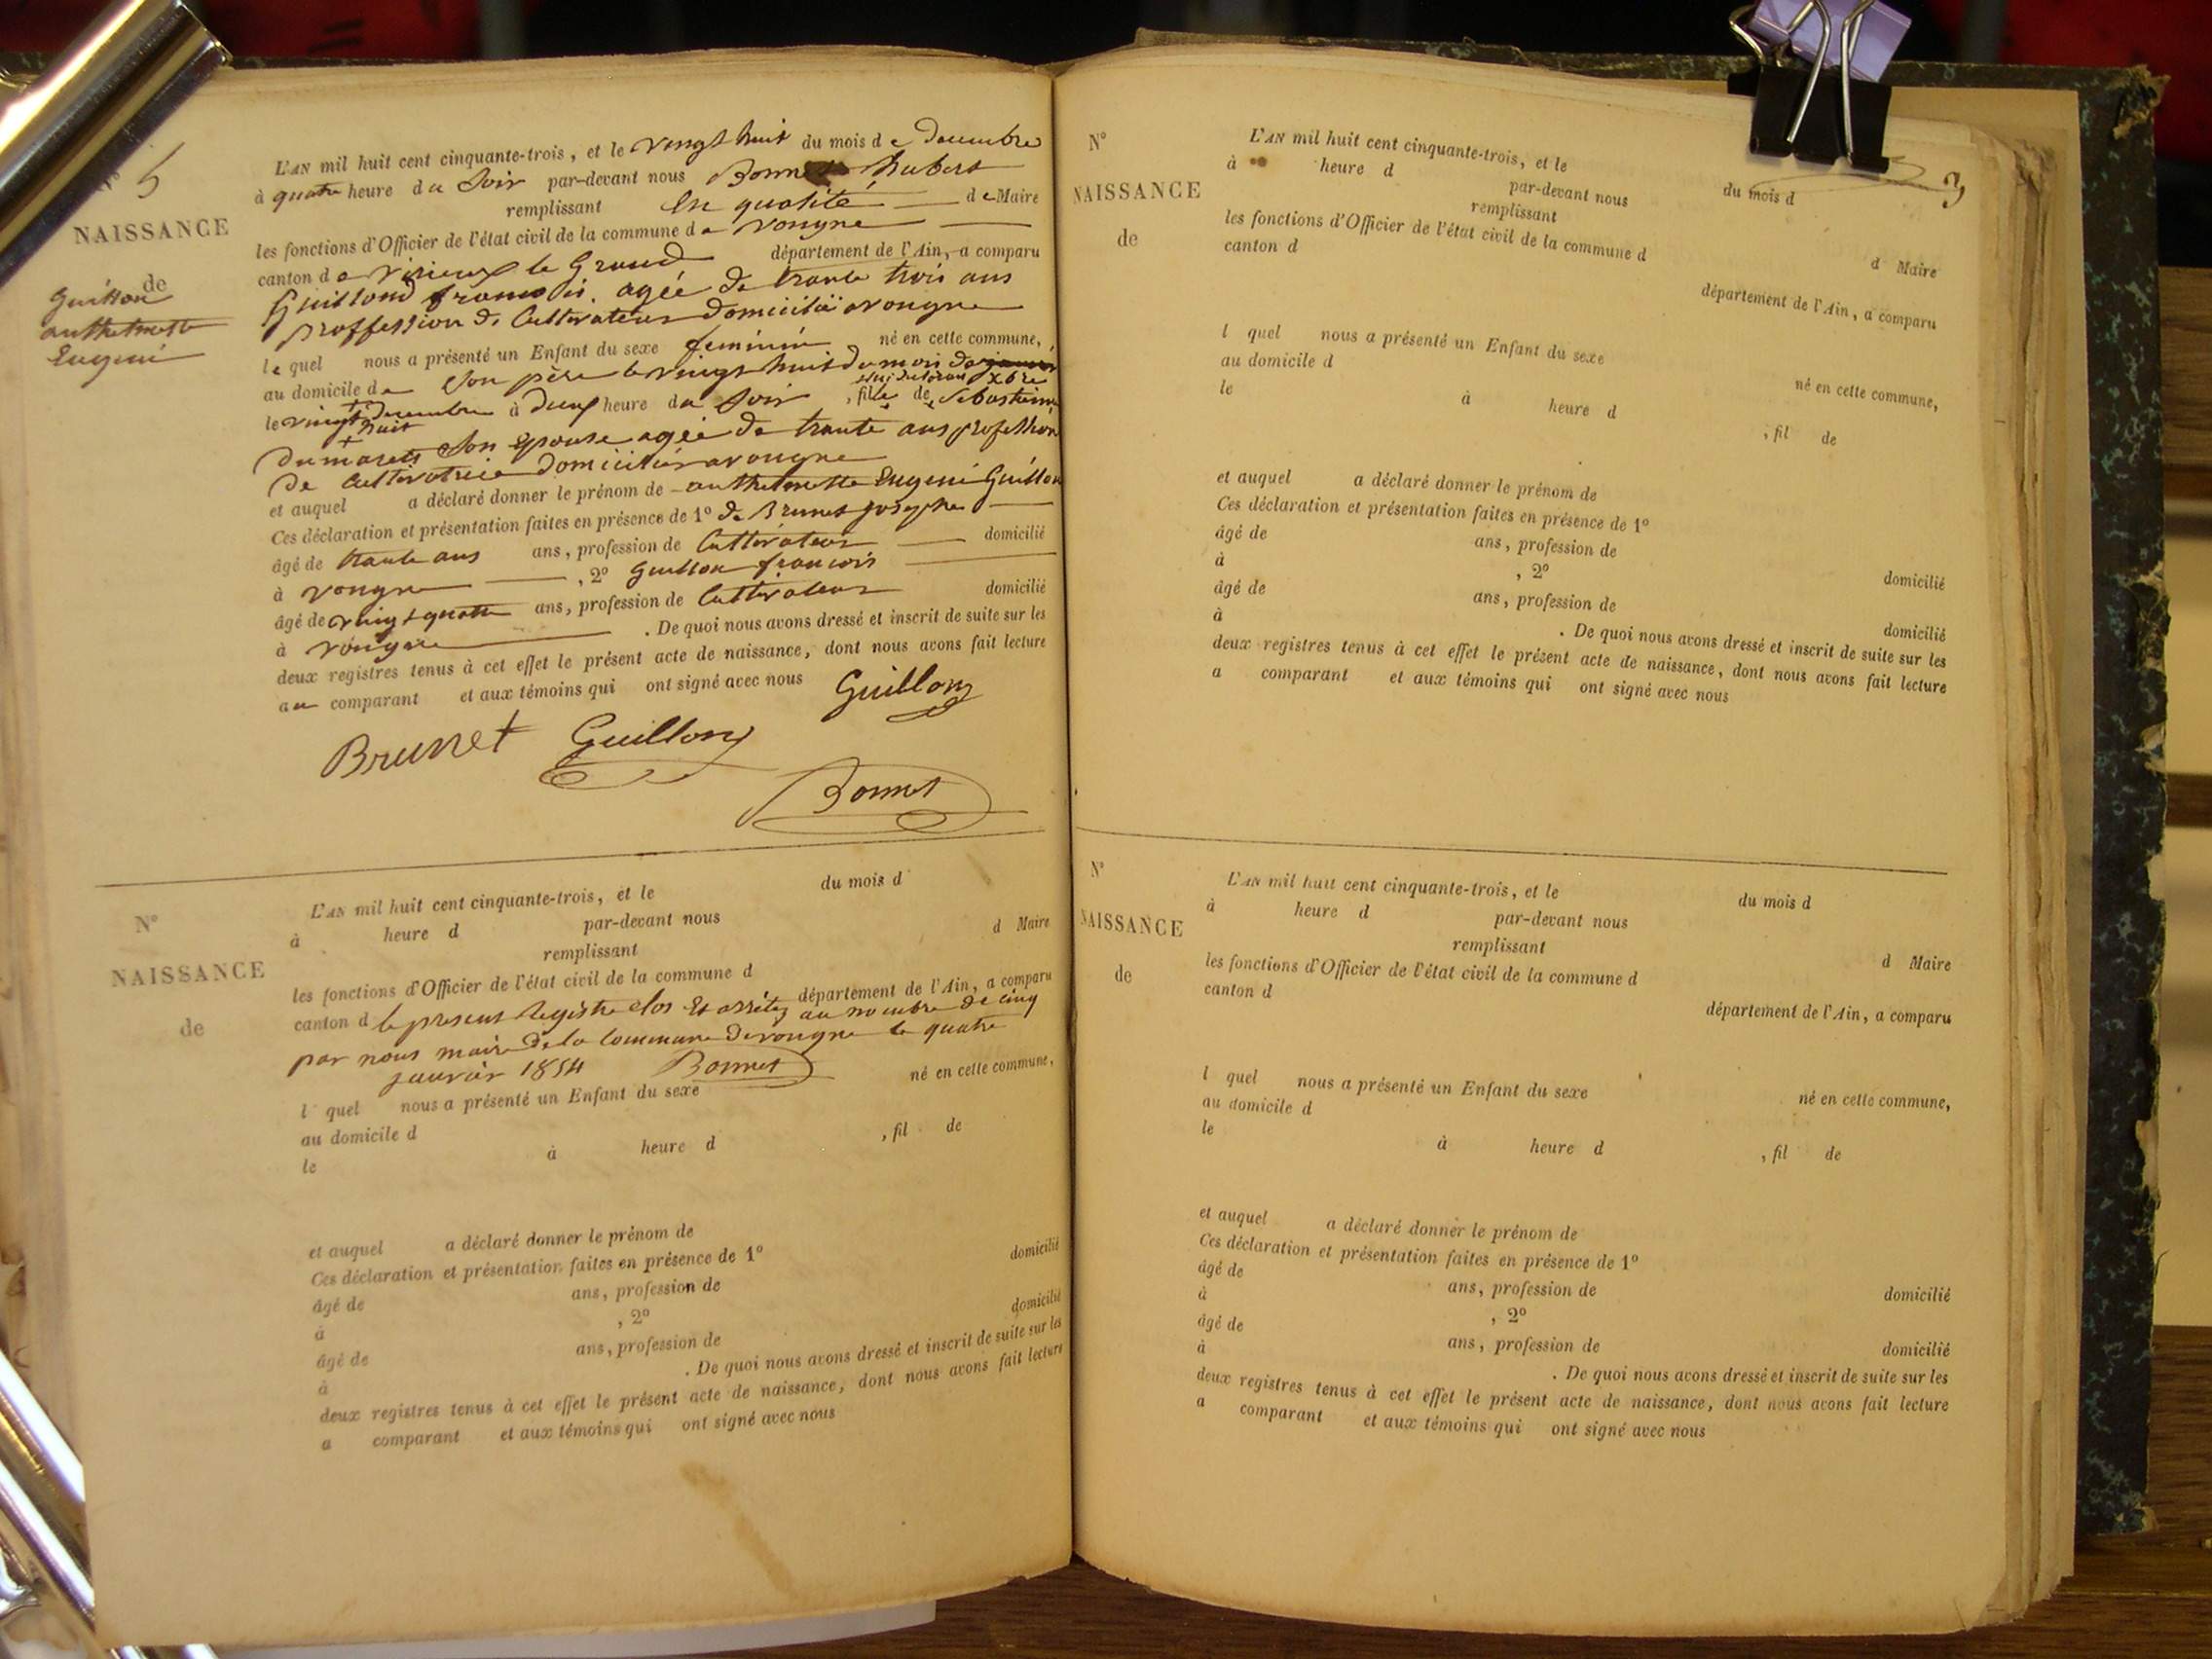 N° 5
NAISSANCE
de
Guillon
anthelmette
Eugeni
L'AN mil huit cent cinquante-trois, et le vingt huit du mois de decembre
à quatre heure du Soir par-devant nous Bonnet hubert
remplissant en qualité de Maire
les fonctions d'Officier de l'état civil de la commune de vongne
canton de virieux le Grand département de l'Ain, a comparu
Guillond francois. agée de trante trois ans
proffession de Cultivateur domicilié a vongne
le quel nous a présenté un Enfant du sexe feminin né en cette commune,
au domicile de Son père le vingt huit du mois de
xbre
le vingt decembre à deux heure du Soir, fille de Sebastienne
+ huit
dumarets Son Epouse agée de trante ans profession
de cultivatrice domiciliés a vongne
et auquel a déclaré donner le prénom de anthelmette Eugeni Guillon
Ces déclaration et présentation faites en présence de 1° de Brunet josephe
âgé de trante ans ans, profession de Cultivateur domicilié
à vongne, 2° Guillon francois
âgé de vingt quatre ans, profession de Cultivateur domicilié
à vongne. De quoi nous avons dressé et inscrit de suite sur les
deux registres tenus à cet effet le présent acte de naissance, dont nous avons fait lecture
au comparant et aux témoins qui ont signé avec nous Guillon
Brunet Guillon
Bonnet
N°
NAISSANCE
de
L'AN mil huit cent cinquante-trois, et le du mois d
à heure d par-devant nous
remplissant d Maire
les fonctions d'Officier de l'état civil de la commune d
canton d département de l'Ain, a comparu
le present registre clos Et arrêtez au nombre de cinq
par nous maire de la commune de vongne le quatre
janvier 1854 Bonnet
l quel nous a présenté un Enfant du sexe né en cette commune,
au domicile d
le à heure d, fil de
et auquel a déclaré donner le prénom de
Ces déclaration et présentation faites en présence de 1°
âgé de ans, profession de domicilié
à, 2°
âgé de ans, profession de domicilié
à. De quoi nous avons dressé et inscrit de suite sur les
deux registres tenus à cet effet le présent acte de naissance, dont nous avons fait lecture
a comparant et aux témoins qui ont signé avec nous
3
N°
NAISSANCE
de
L'AN mil huit cent cinquante-trois, et le du mois d
à heure d par-devant nous
remplissant d Maire
les fonctions d'Officier de l'état civil de la commune d
canton d département de l'Ain, a comparu
l quel nous a présenté un Enfant du sexe né en cette commune,
au domicile d
le à heure d, fil de
et auquel a déclaré donner le prénom de
Ces déclaration et présentation faites en présence de 1°
âgé de ans, profession de domicilié
à, 2°
âgé de ans, profession de domicilié
à. De quoi nous avons dressé et inscrit de suite sur les
deux registres tenus à cet effet le présent acte de naissance, dont nous avons fait lecture
a comparant et aux témoins qui ont signé avec nous
N°
NAISSANCE
de
L'AN mil huit cent cinquante-trois, et le du mois d
à heure d par-devant nous
remplissant d Maire
les fonctions d'Officier de l'état civil de la commune d
canton d département de l'Ain, a comparu
l quel nous a présenté un Enfant du sexe né en cette commune,
au domicile d
le à heure d, fil de
et auquel a déclaré donner le prénom de
Ces déclaration et présentation faites en présence de 1°
âgé de ans, profession de domicilié
à, 2°
âgé de ans, profession de domicilié
à. De quoi nous avons dressé et inscrit de suite sur les
deux registres tenus à cet effet le présent acte de naissance, dont nous avons fait lecture
a comparant et aux témoins qui ont signé avec nous